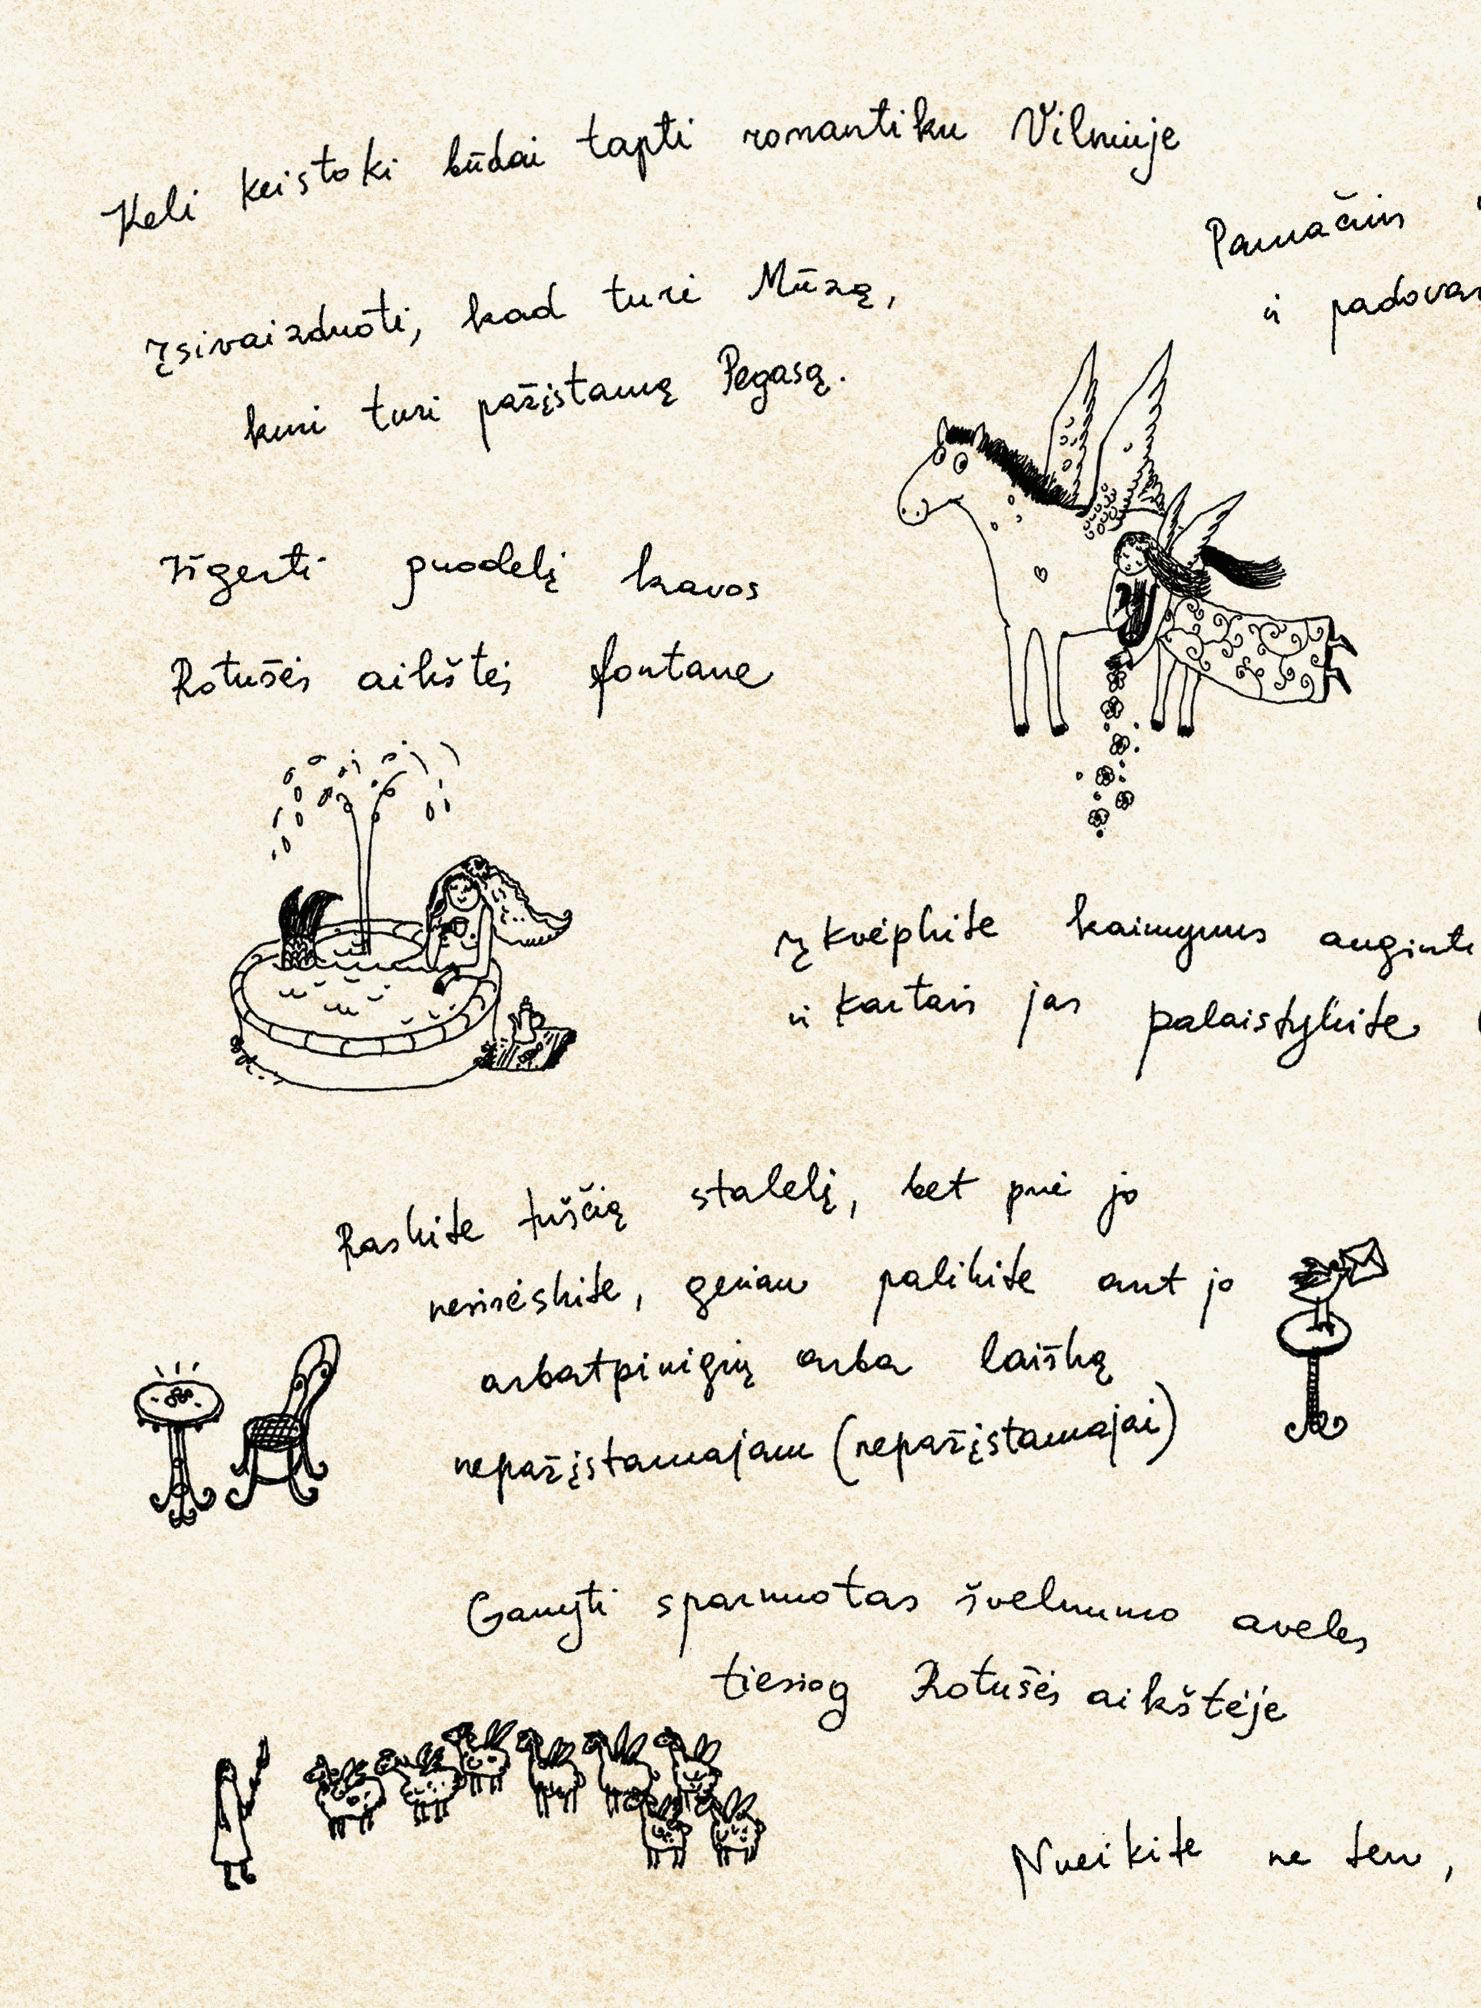 Keli keistoki būdai tapti romantiku Vilniuje
Pamačius
ir padovan
Įsivaizduoti, kad turi Mūzą,
kuri turi pažįstamą Pegasą.
Išgerti puodelį kavos
Rotušės aikštės fontane
Įkvėpkite kaimynus auginti
ir kartais jas palaistykite (
Raskite tuščią stalelį, bet prie jo
nesisėskite, geriau palikite ant jo
arbatpinigių arba laišką
nepažįstamajam (nepažįstamajai)
Ganyti sparnuotas švelnumo aveles
tiesiog Rotušės aikštėje
Nueikite ne ten,